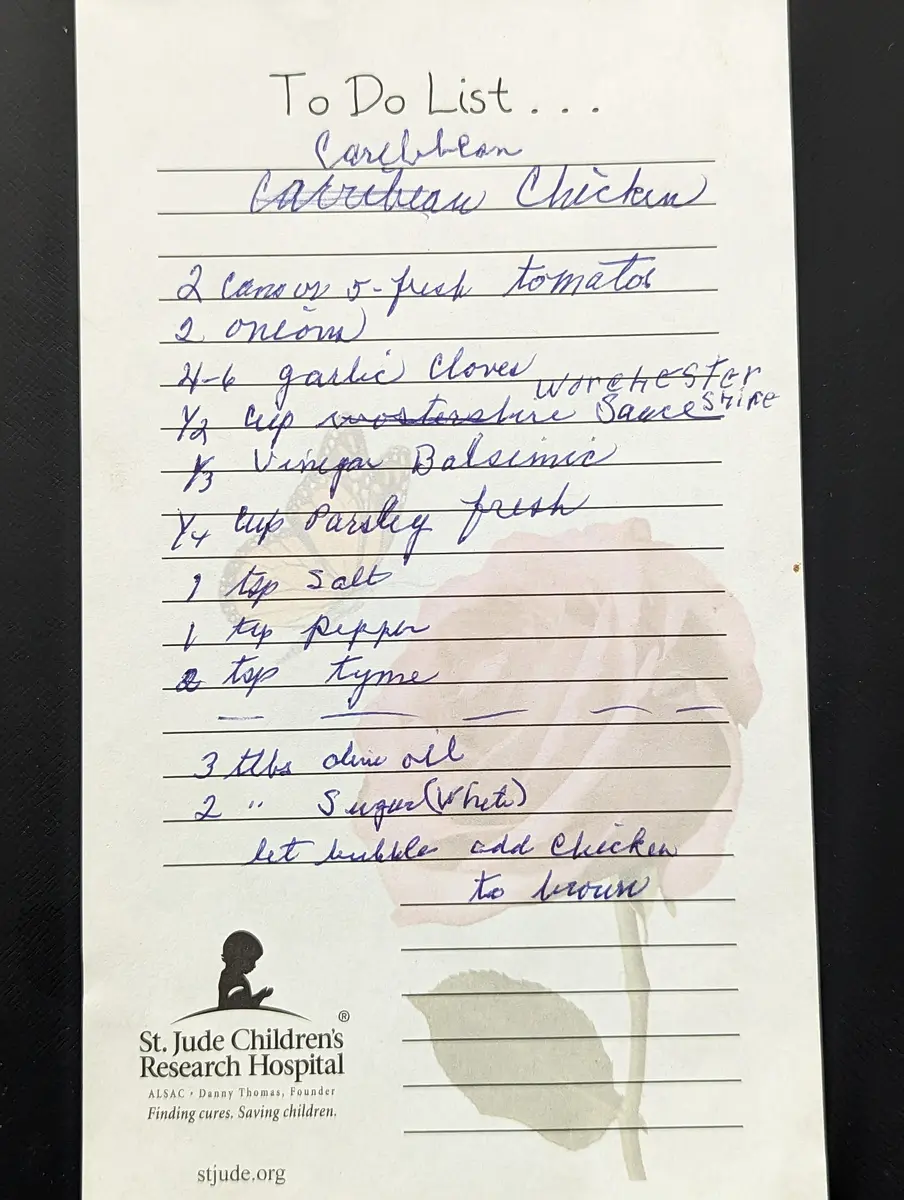 To Do List...
Caribbean
Carribeau Chicken
2 cans or 5-fresh tomatos
2 onions
4-6 garlic cloves
WorCHESTER
1/2 cup wostershire Sauce SHIRE
1/3 Vinegar Balsimic
1/4 cup Parsley fresh
1 tsp salt
1 tsp pepper
2 tsp tyme
3 tlbs olive oil
2 " Sugar (White)
let bubble add chicken
to brown
®
St. Jude Children's
Research Hospital
ALSAC • Danny Thomas, Founder
Finding cures. Saving children.
stjude.org